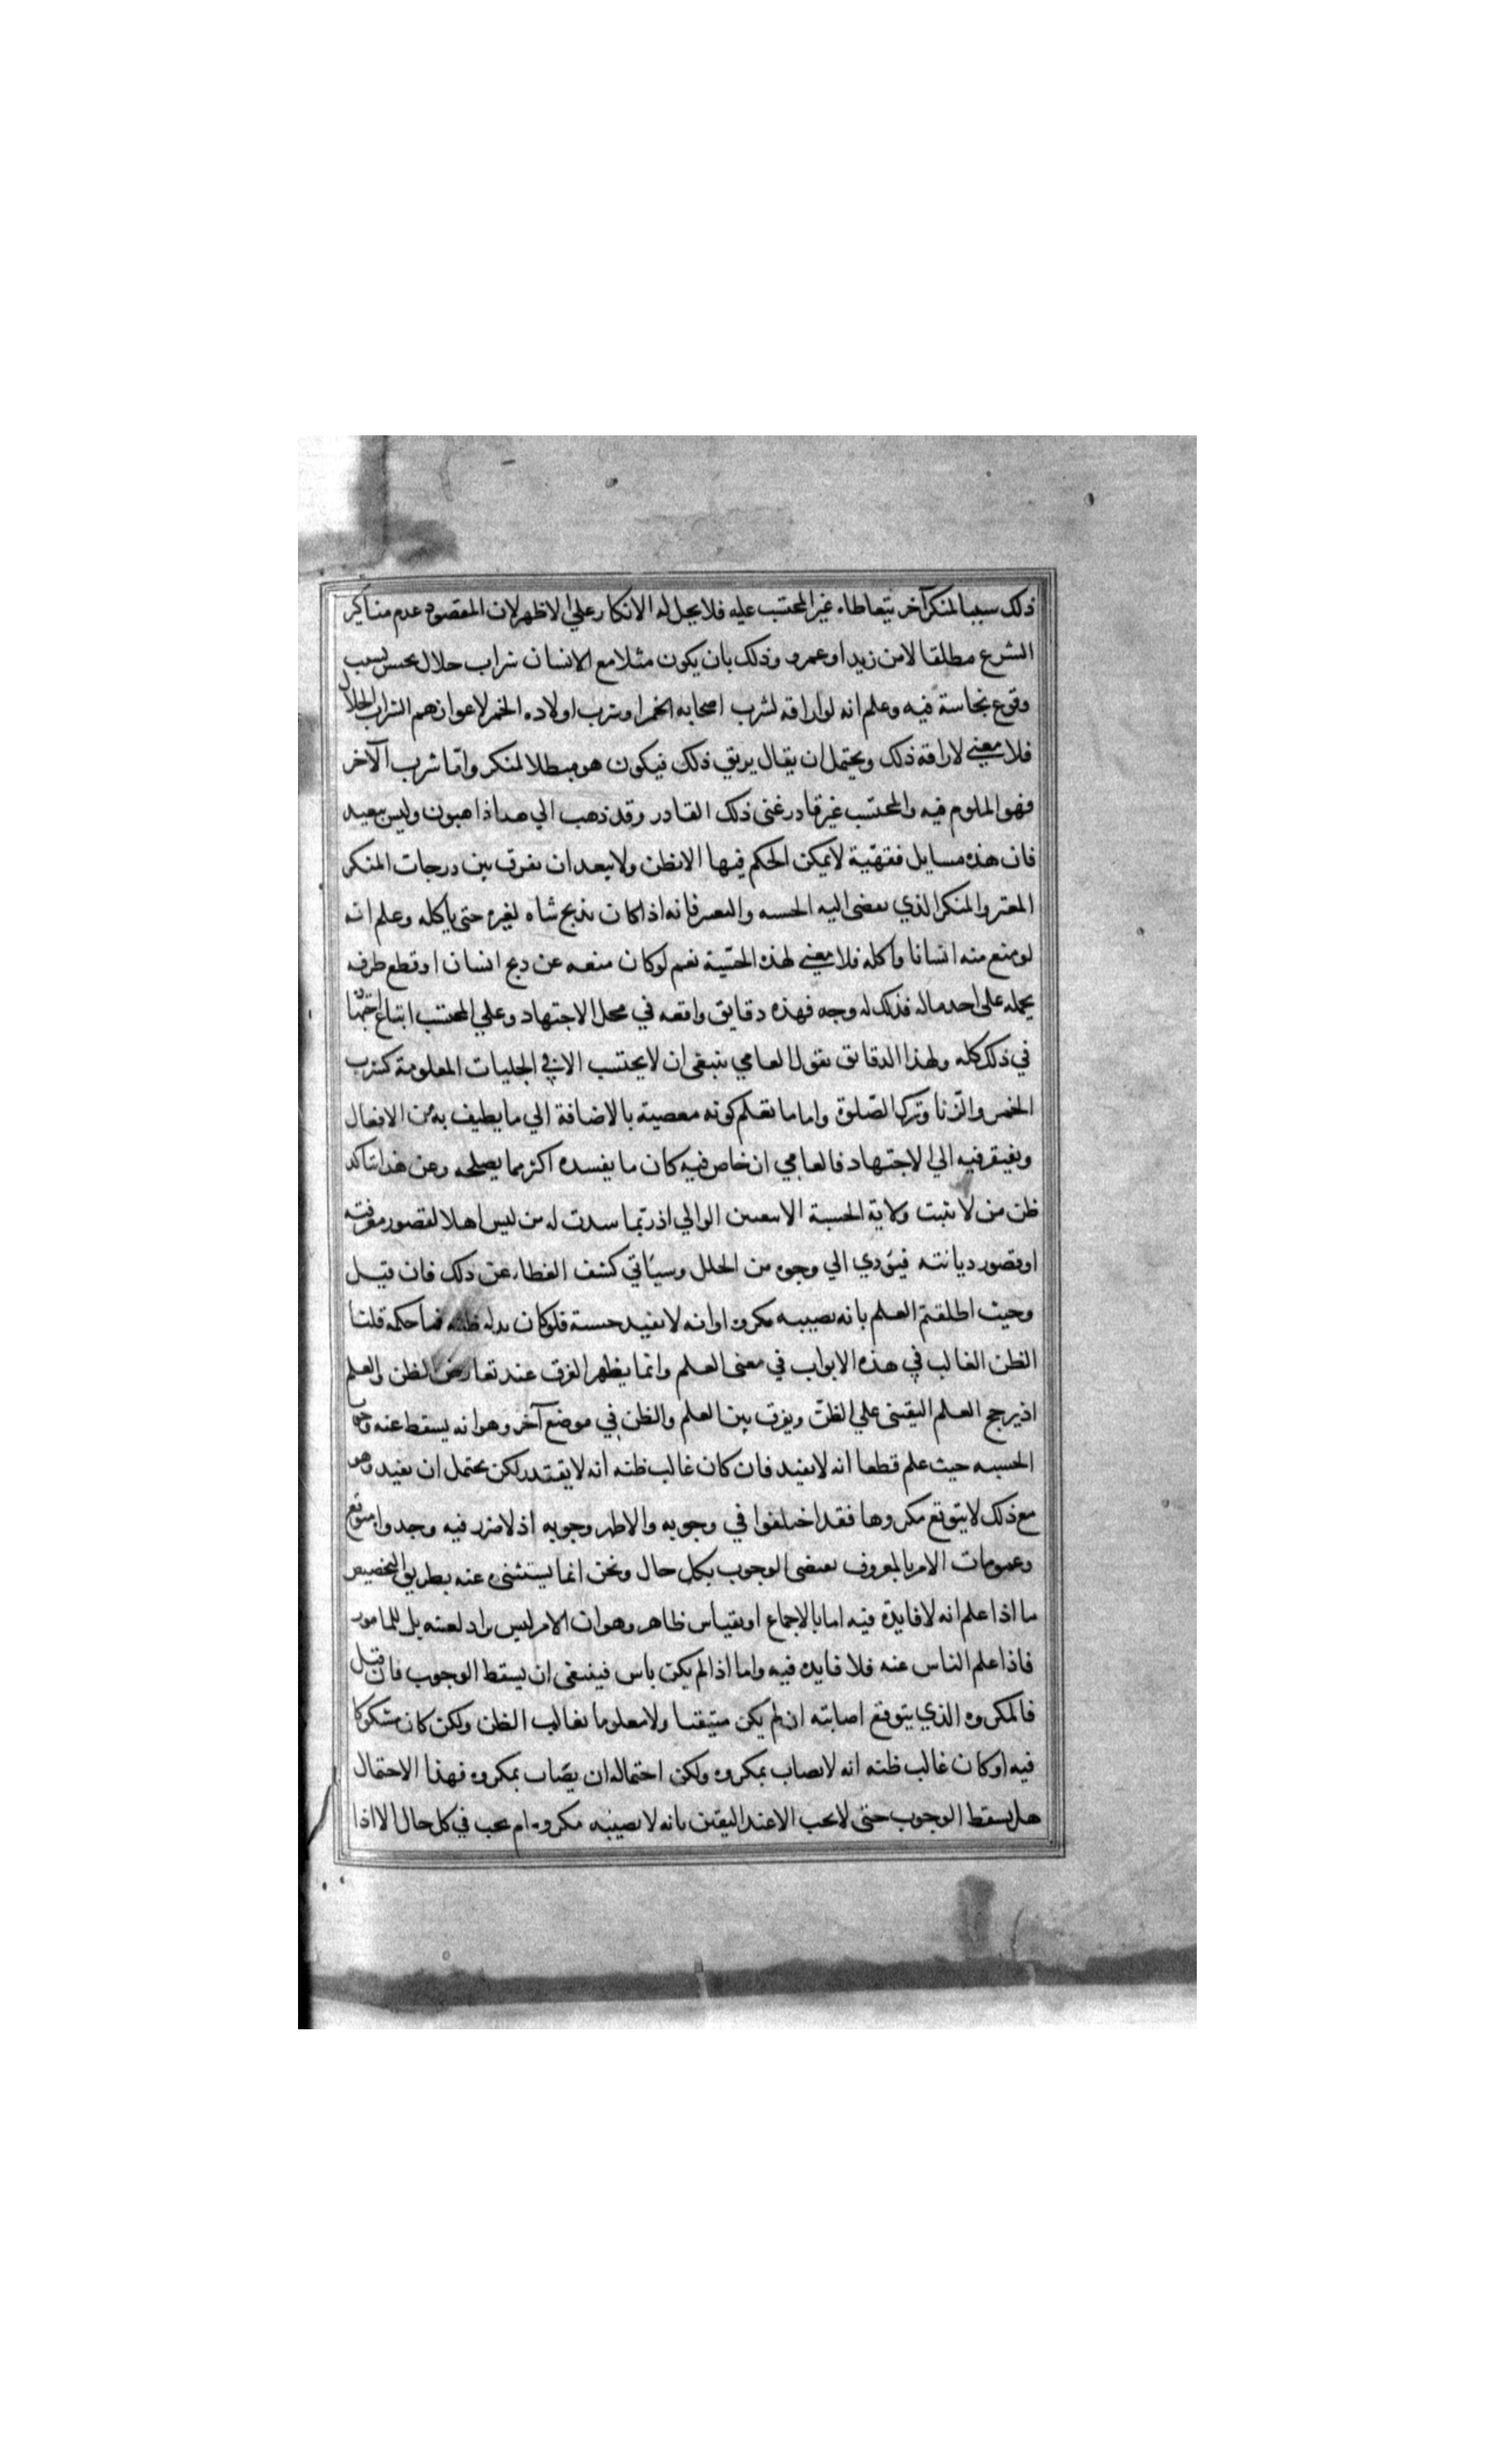 ذلك سببا لمنكر آخر يتعاطاه غير المحتسب عليه فلا يحل له الانكار علي الاظهر لان المقصود عدم مناكير
الشرع مطلقا لا من زيد او عمرو وذلك بان يكون مثلا مع الانسان شراب حلال نجس بسبب
وقوع نجاسة فيه وعلم انه لو اراقه لشرب اصحابه الخمر او شرب اولاده الخمر لاعوازهم الشراب الحلال
فلا معني لاراقة ذلك ويحتمل ان يقال يريق ذلك فيكون هو مبطلا لمنكر واما شرب الآخر
فهو الملوم فيه والمحتسب غير قادر غنى ذلك القادر وقد ذهب الي هذا ذاهبون وليس ببعيد
فان هذه مسايل فقهية لا يمكن الحكم فيها الا بظن ولا يبعد ان نفرق بين درجات المنكر
المغير والمنكر الذي يفضى اليه الحسبه والتغيير فانه اذا كان يذبح شاه لغيره حتى ياكله وعلم انه
لو منع منه انسانا واكله فلا معني لهذه الحسبة نعم لو كان منعه عن ذبح انسان او قطع طرفه
يحمله على اخذ ماله فذلك له وجه فهذه دقايق واقعه في محل الاجتهاد وعلي المحتسب اتباع اجتهاده
في ذلك كله ولهذا الدقايق نقول العامي ينبغى ان لا يحتسب الا في الجليات المعلومة كشرب
الخمر والزنا وترك الصلوة واما ما نعلم كونه معصية بالاضافة الي ما يطيف به من الافعال
ويفتقر فيه الي الاجتهاد فالعامي ان خاض فيه كان ما يفسده اكثر مما يصلحه وعن هذا يتاكد
ظن من لا يثبت ولاية الحسبة الا بتعيين الوالي اذ ربما سدت له من ليس اهلا لقصور معرفته
او قصور ديانته فيؤدي الي وجوه من الخلل وسيأتي كشف الغطاء عن ذلك فان قيل
وحيث اطلقتم العلم بانه يصيبه مكروه او انه لا تفيد حسبته فلو كان بدله ظنه فما حكمه قلنا
الظن الغالب في هذه الابواب في معنى العلم وانما يظهر الفرق عند تعارض الظن والعلم
اذ يرجح العلم اليقينى علي الظن ويفرق بين العلم والظن في موضع آخر وهو انه يسقط عنه وجوب
الحسبه حيث علم قطعا انه لا يفيد فان كان غالب ظنه انه لا يفيد ولكن يحتمل ان يفيد وهو
مع ذلك لا يتوقع مكروها فقد اختلفوا في وجوبه والاظهر وجوبه اذ لا ضرر فيه وجدواه متوقع
وعمومات الامر بالمعروف يقتضى الوجوب بكل حال ونحن انما يستثنى عنه بطريق التخصيص
ما اذا علم انه لا فايدة فيه اما بالاجماع او بقياس ظاهر وهو ان الامر ليس يراد لعينه بل للمامور
فاذا علم الناس عنه فلا فايده فيه واما اذا لم يكن باس فينبغى ان يسقط الوجوب فان قيل
فالمكروه الذي يتوقع اصابته ان لم يكن متيقنا ولا معلوما بغالب الظن ولكن كان مشكوكا
فيه او كان غالب ظنه انه لا يصاب بمكروه ولكن احتماله ان يصاب بمكروه فهذا الاحتمال
هل يسقط الوجوب حتى لا يجب الا عند اليقين بانه لا يصيبه مكروه ام يجب في كل حال الا اذا